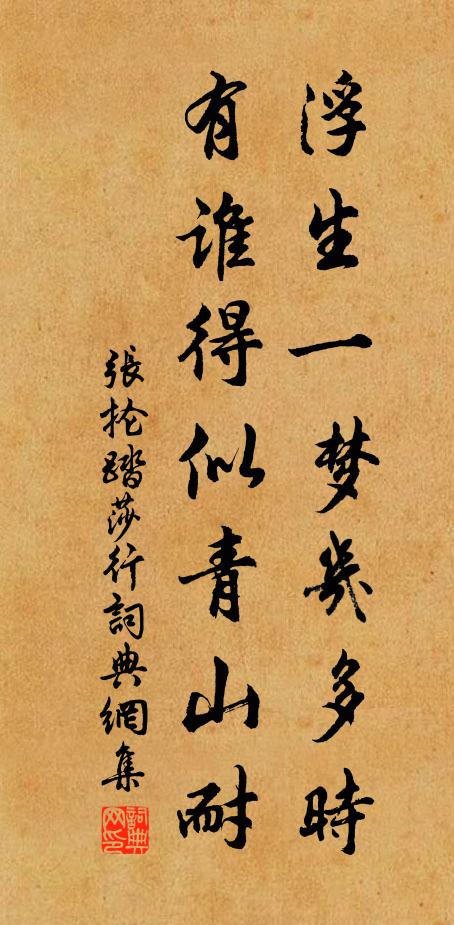 浮生一梦幾多時
有誰得似青山耐
張抡踏莎行詞典網集
詞典网印